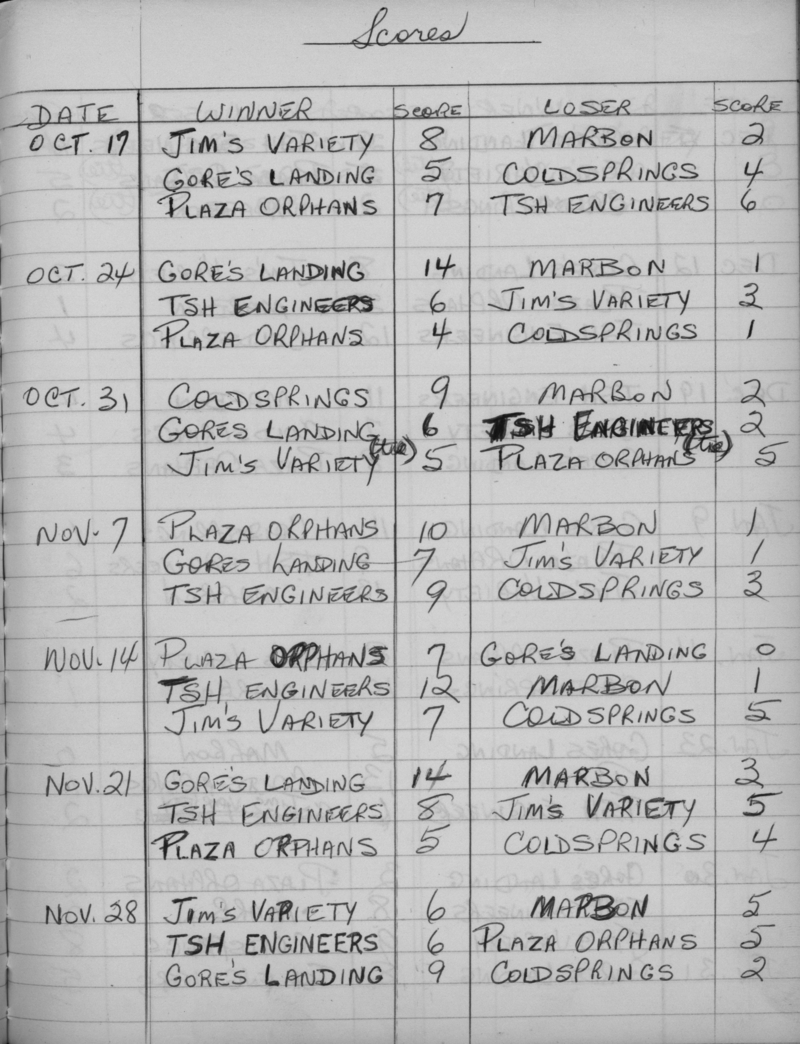 Scores
DATE WINNER SCORE LOSER SCORE
OCT. 17 JIM'S VARIETY 8 MARBON 2
GORE'S LANDING 5 COLDSPRINGS 4
PLAZA ORPHANS 7 TSH ENGINEERS 6
OCT. 24 GORE'S LANDING 14 MARBON 1
TSH ENGINEERS 6 JIM'S VARIETY 3
PLAZA ORPHANS 4 COLDSPRINGS 1
OCT. 31 COLDSPRINGS 9 MARBON 2
GORES LANDING 6 TSH ENGINEERS 2
JIM'S VARIETY (tie) 5 PLAZA ORPHANS (tie) 5
NOV. 7 PLAZA ORPHANS 10 MARBON 1
GORES LANDING 7 JIM'S VARIETY 1
TSH ENGINEERS 9 COLDSPRINGS 3
NOV. 14 PLAZA ORPHANS 7 GORE'S LANDING 0
TSH ENGINEERS 12 MARBON 1
JIM'S VARIETY 7 COLDSPRINGS 5
NOV. 21 GORE'S LANDING 14 MARBON 3
TSH ENGINEERS 8 JIM'S VARIETY 5
PLAZA ORPHANS 5 COLDSPRINGS 4
NOV. 28 JIM'S VARIETY 6 MARBON 5
TSH ENGINEERS 6 PLAZA ORPHANS 5
GORE'S LANDING 9 COLDSPRINGS 2